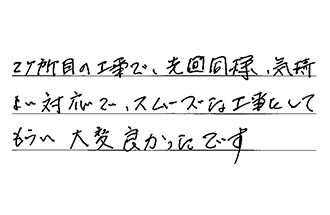 2ヶ所目の工事で、先回同様、気持
よい対応で、スムーズな工事をして
もらい大変良かったです